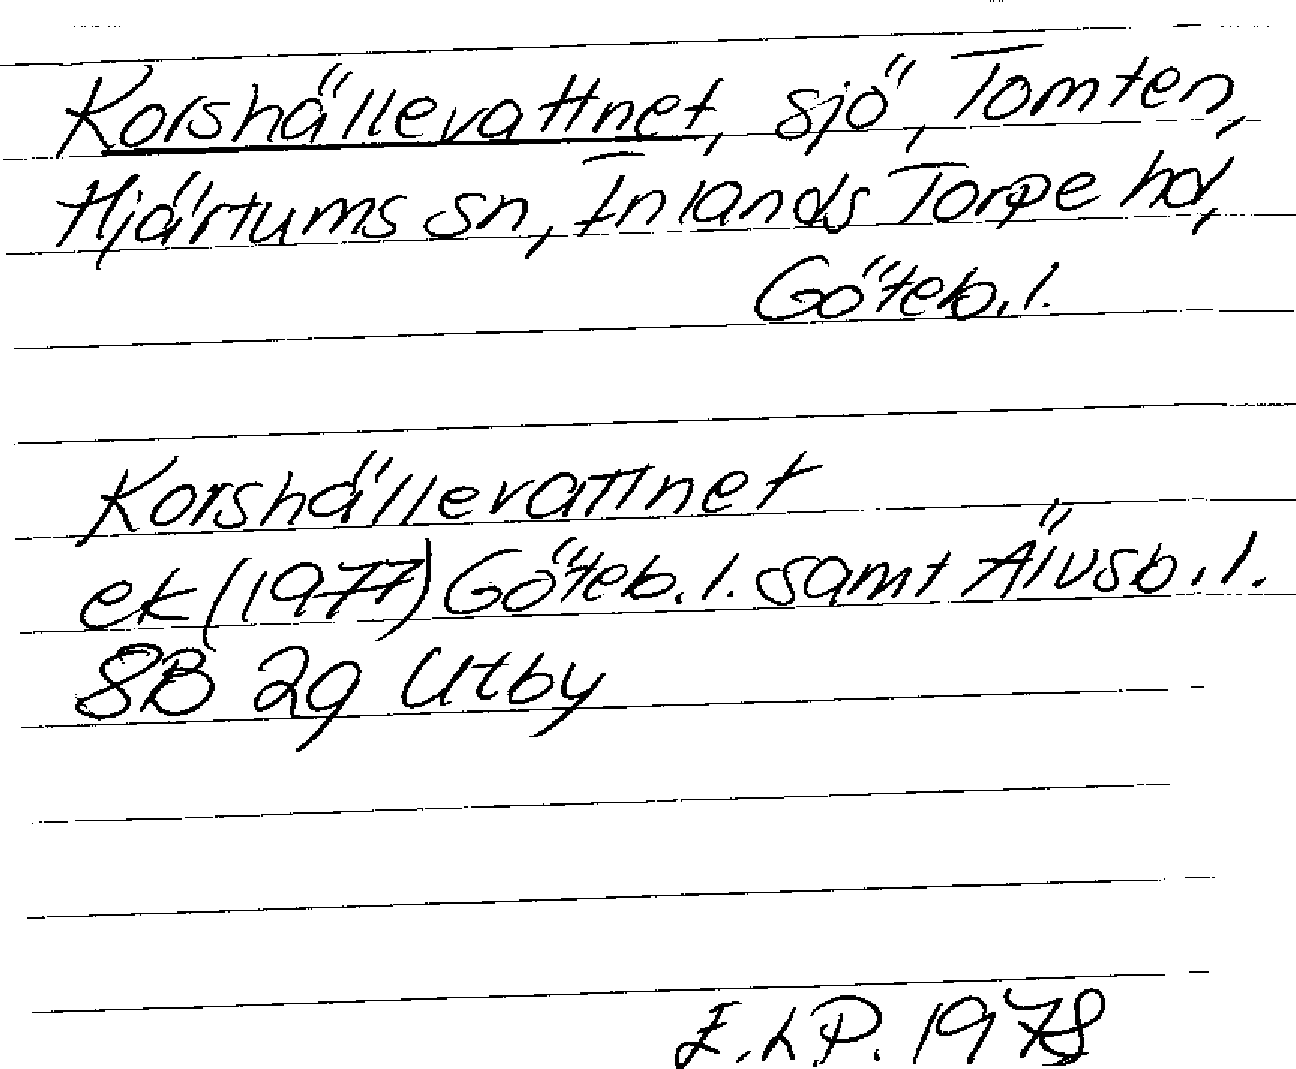 Korshällevattnet, sjö, Tomten,
Hjärtums sn, Inlands Torpe hd,
Göteb. l.
Korshällevattnet
ek (1977) Göteb. l. samt Älvsb. l.
8B 2g Utby
E.L.P. 1978